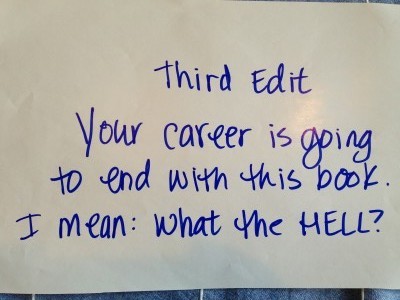 Third Edit
Your career is going
to end with this book.
I mean: What the HELL?